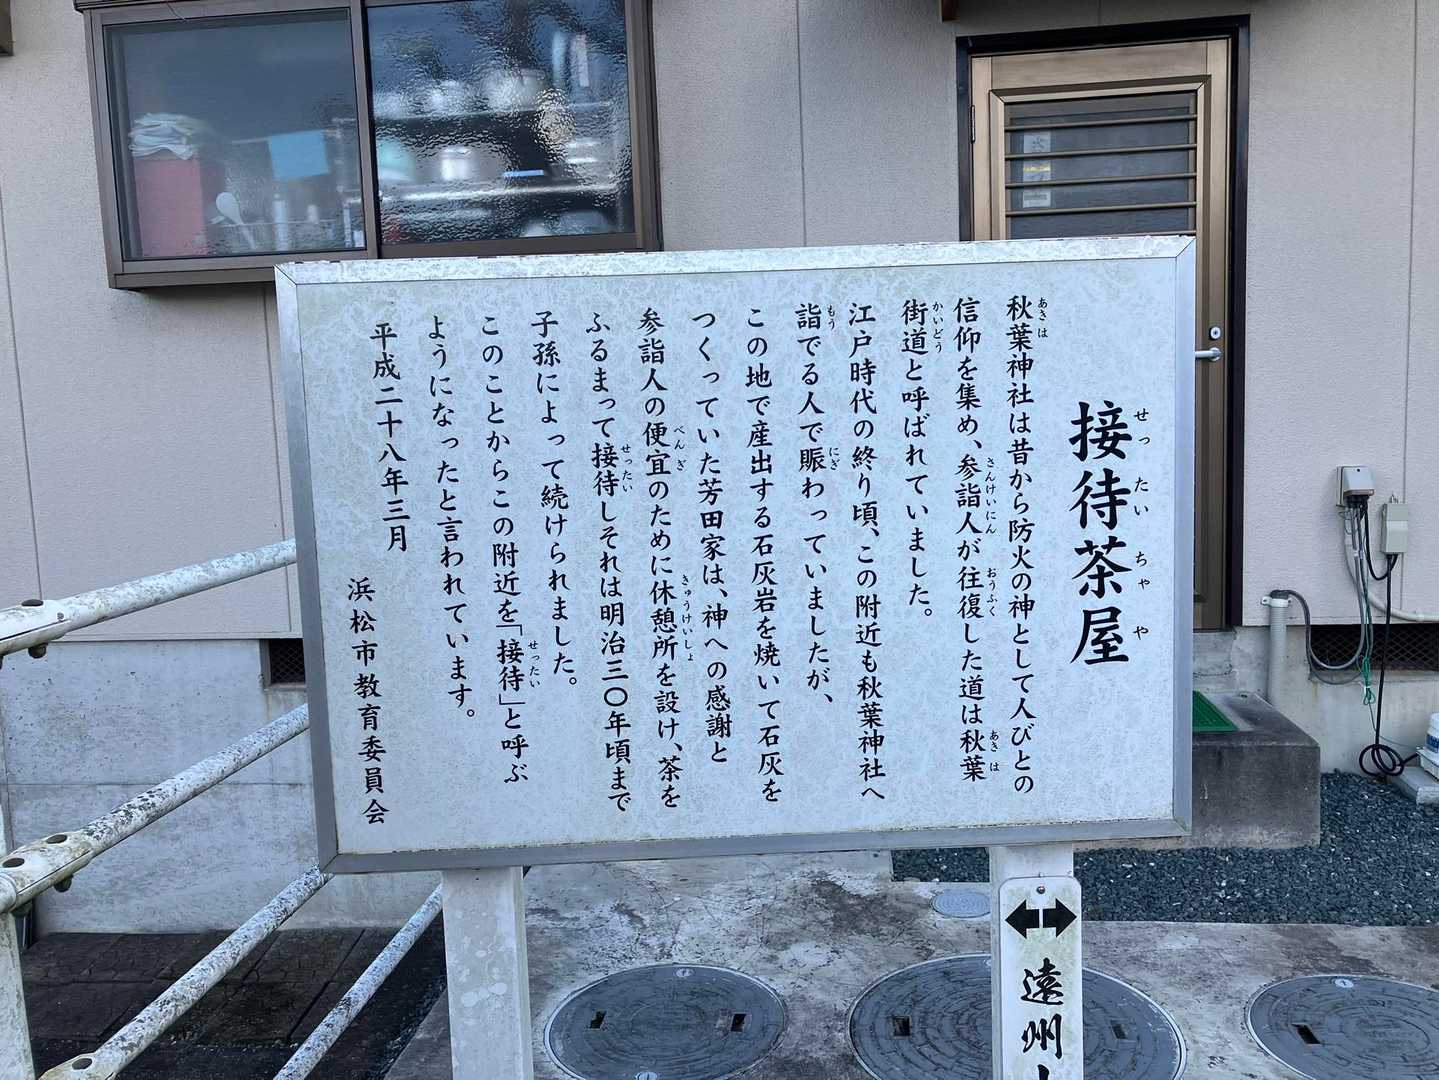 接待茶屋
せったいちゃや
秋葉神社は昔から防火の神として人びとの
あきは
信仰を集め、参詣人が往復した道は秋葉
さんけいにん
おうふく
あきは
街道と呼ばれていました。
かいどう
江戸時代の終り頃、この附近も秋葉神社へ
詣でる人で賑わっていましたが、
もう
にぎ
この地で産出する石灰岩を焼いて石灰を
つくっていた芳田家は、神への感謝と
参詣人の便宜のために休憩所を設け、茶を
べんぎ
きゅうけいしょ
ふるまって接待しそれは明治三〇年頃まで
せったい
子孫によって続けられました。
このことからこの附近を「接待」と呼ぶ
せったい
ようになったと言われています。
平成二十八年三月
浜松市教育委員会
遠州